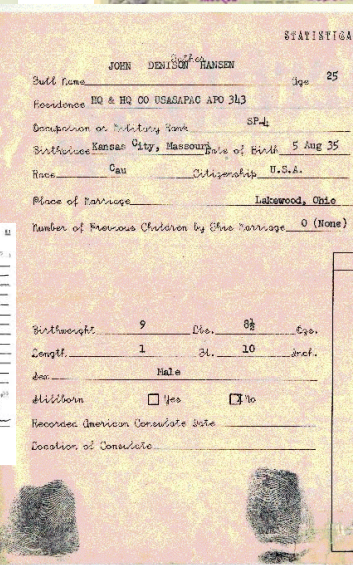 STATISTICA
Father
JOHN DENISON HANSEN
Full Name Age 25
Residence HQ & HQ CO USASAPAC APO 343
Occupation or Military Rank SP-4
Birthplace Kansas City, Massouri Date of Birth 5 Aug 35
Race Cau Citizenship U.S.A.
Place of Marriage Lakewood, Ohio
Number of Previous Children by This Marriage 0 (None)
Birthweight 9 Lbs. 8½ Ozs.
Length 1 Ft. 10 Inch.
Sex Male
Stillborn Yes X No
Recorded American Consulate Date
Location of Consulate